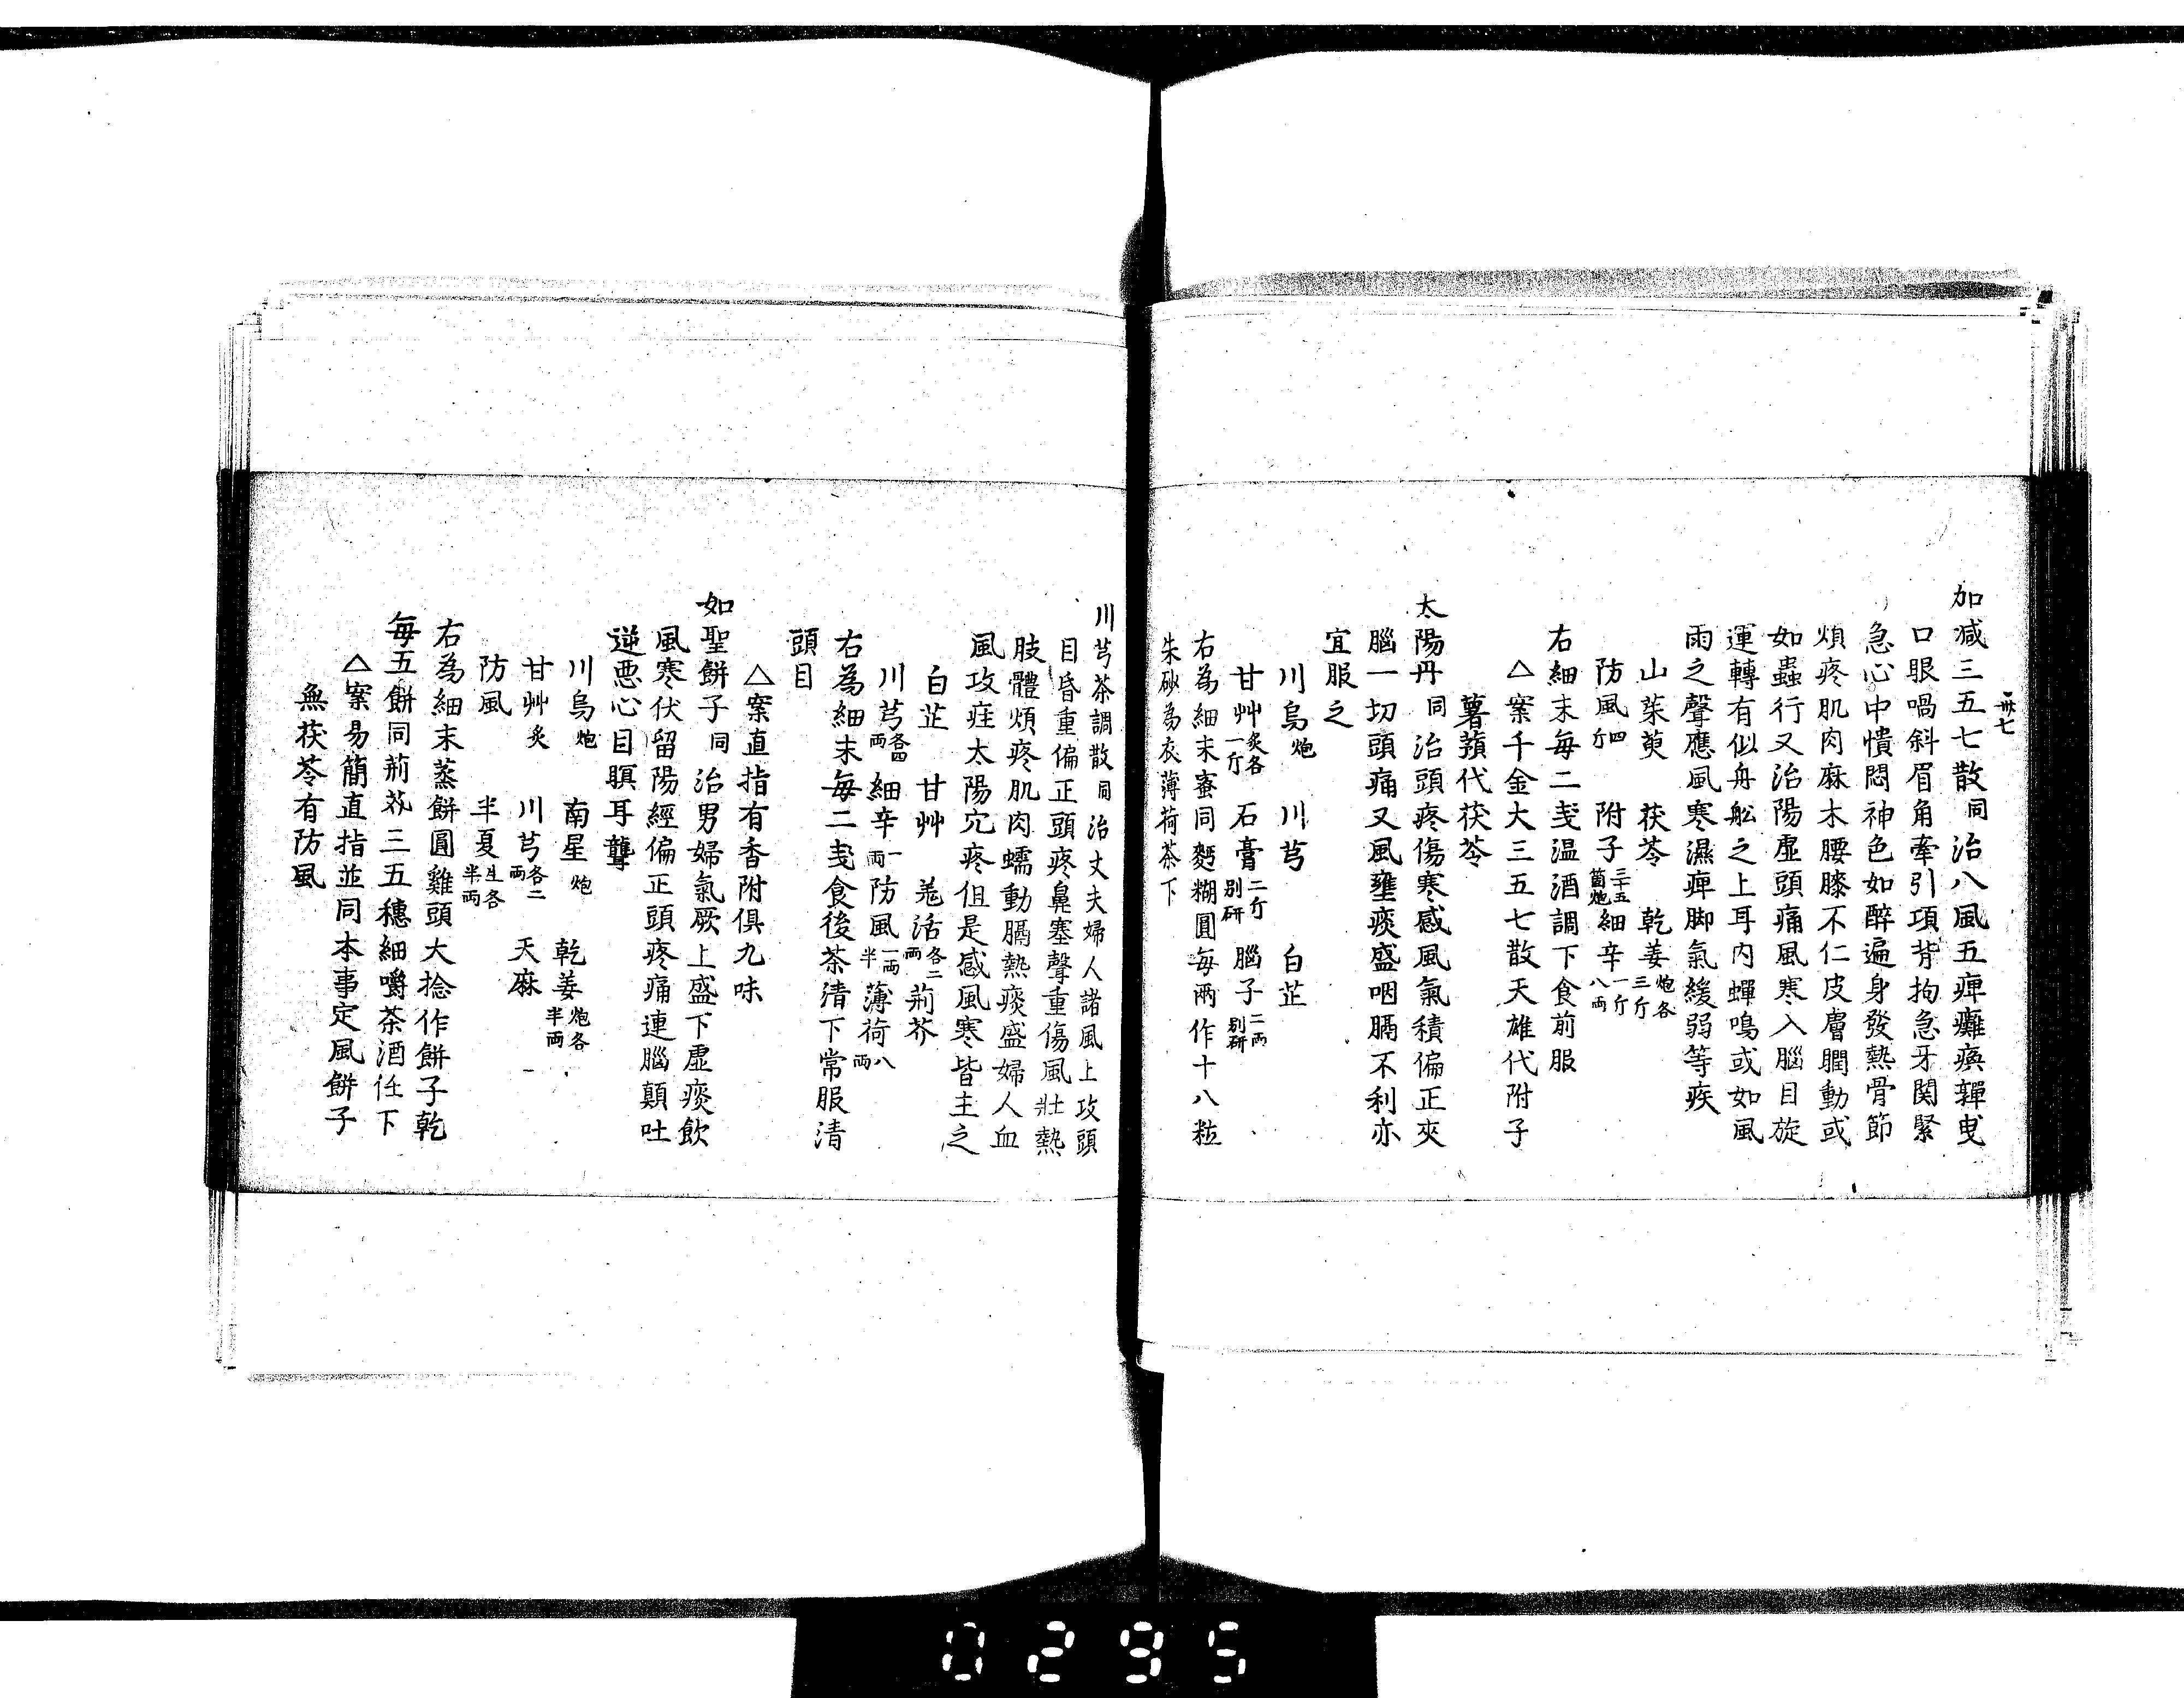 卅七
加减三五七散同治八風五痺癱瘓軃曳
口眼喎斜眉角牽引項背拘急牙関緊
急心中憒悶神色如醉遍身發熱骨節
煩疼肌肉麻木腰膝不仁皮膚瞤動或
如蟲行又治陽虚頭痛風寒入腦目旋
運轉有似舟舩之上耳内蟬鳴或如風
雨之聲應風寒濕痺脚氣緩弱等疾
山茱萸 茯苓 乾姜炮各三斤
防風四斤 附子三十五箇炮 細辛一斤八両
右細末毎二戔温酒調下食前服
△案千金大三五七散天雄代附子
薯蕷代茯苓
太陽丹同治頭疼傷寒感風氣積偏正夾
腦一切頭痛又風壅痰盛咽膈不利亦
宜服之
川烏炮 川芎 白芷
甘艸炙各一斤 石膏二斤別研 腦子二両別研
右為細末蜜同麪糊圓毎両作十八粒
朱砂為衣薄荷茶下
川芎茶調散同治丈夫婦人諸風上攻頭
目昏重偏正頭疼鼻塞聲重傷風壯熱
肢體煩疼肌肉蠕動膈熱痰盛婦人血
風攻疰太陽穴疼但是感風寒皆主之
白芷 甘艸 羗活各二両 荊芥
川芎各四両 細辛一両 防風一両半 薄荷八両
右為細末毎二戔食後茶清下常服清
頭目
△案直指有香附俱九味
如聖餅子同治男婦氣厥上盛下虚痰飲
風寒伏留陽經偏正頭疼痛連腦顛吐
逆悪心目瞑耳聾
川烏炮 南星炮 乾姜炮各半両
甘艸炙 川芎各二両 天麻
防風 半夏生各半両
右為細末蒸餅圓雞頭大捻作餅子乾
毎五餅同荊芥三五穗細嚼茶酒任下
△案易簡直指並同本事定風餅子
無茯苓有防風
0295